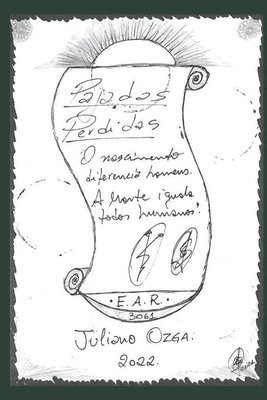 Pajadas
Perdidas
O nascimento
diferencia homens.
A Morte iguala
todos humanos!
. E.A.R. .
3061
Juliano OZGA.
2022.